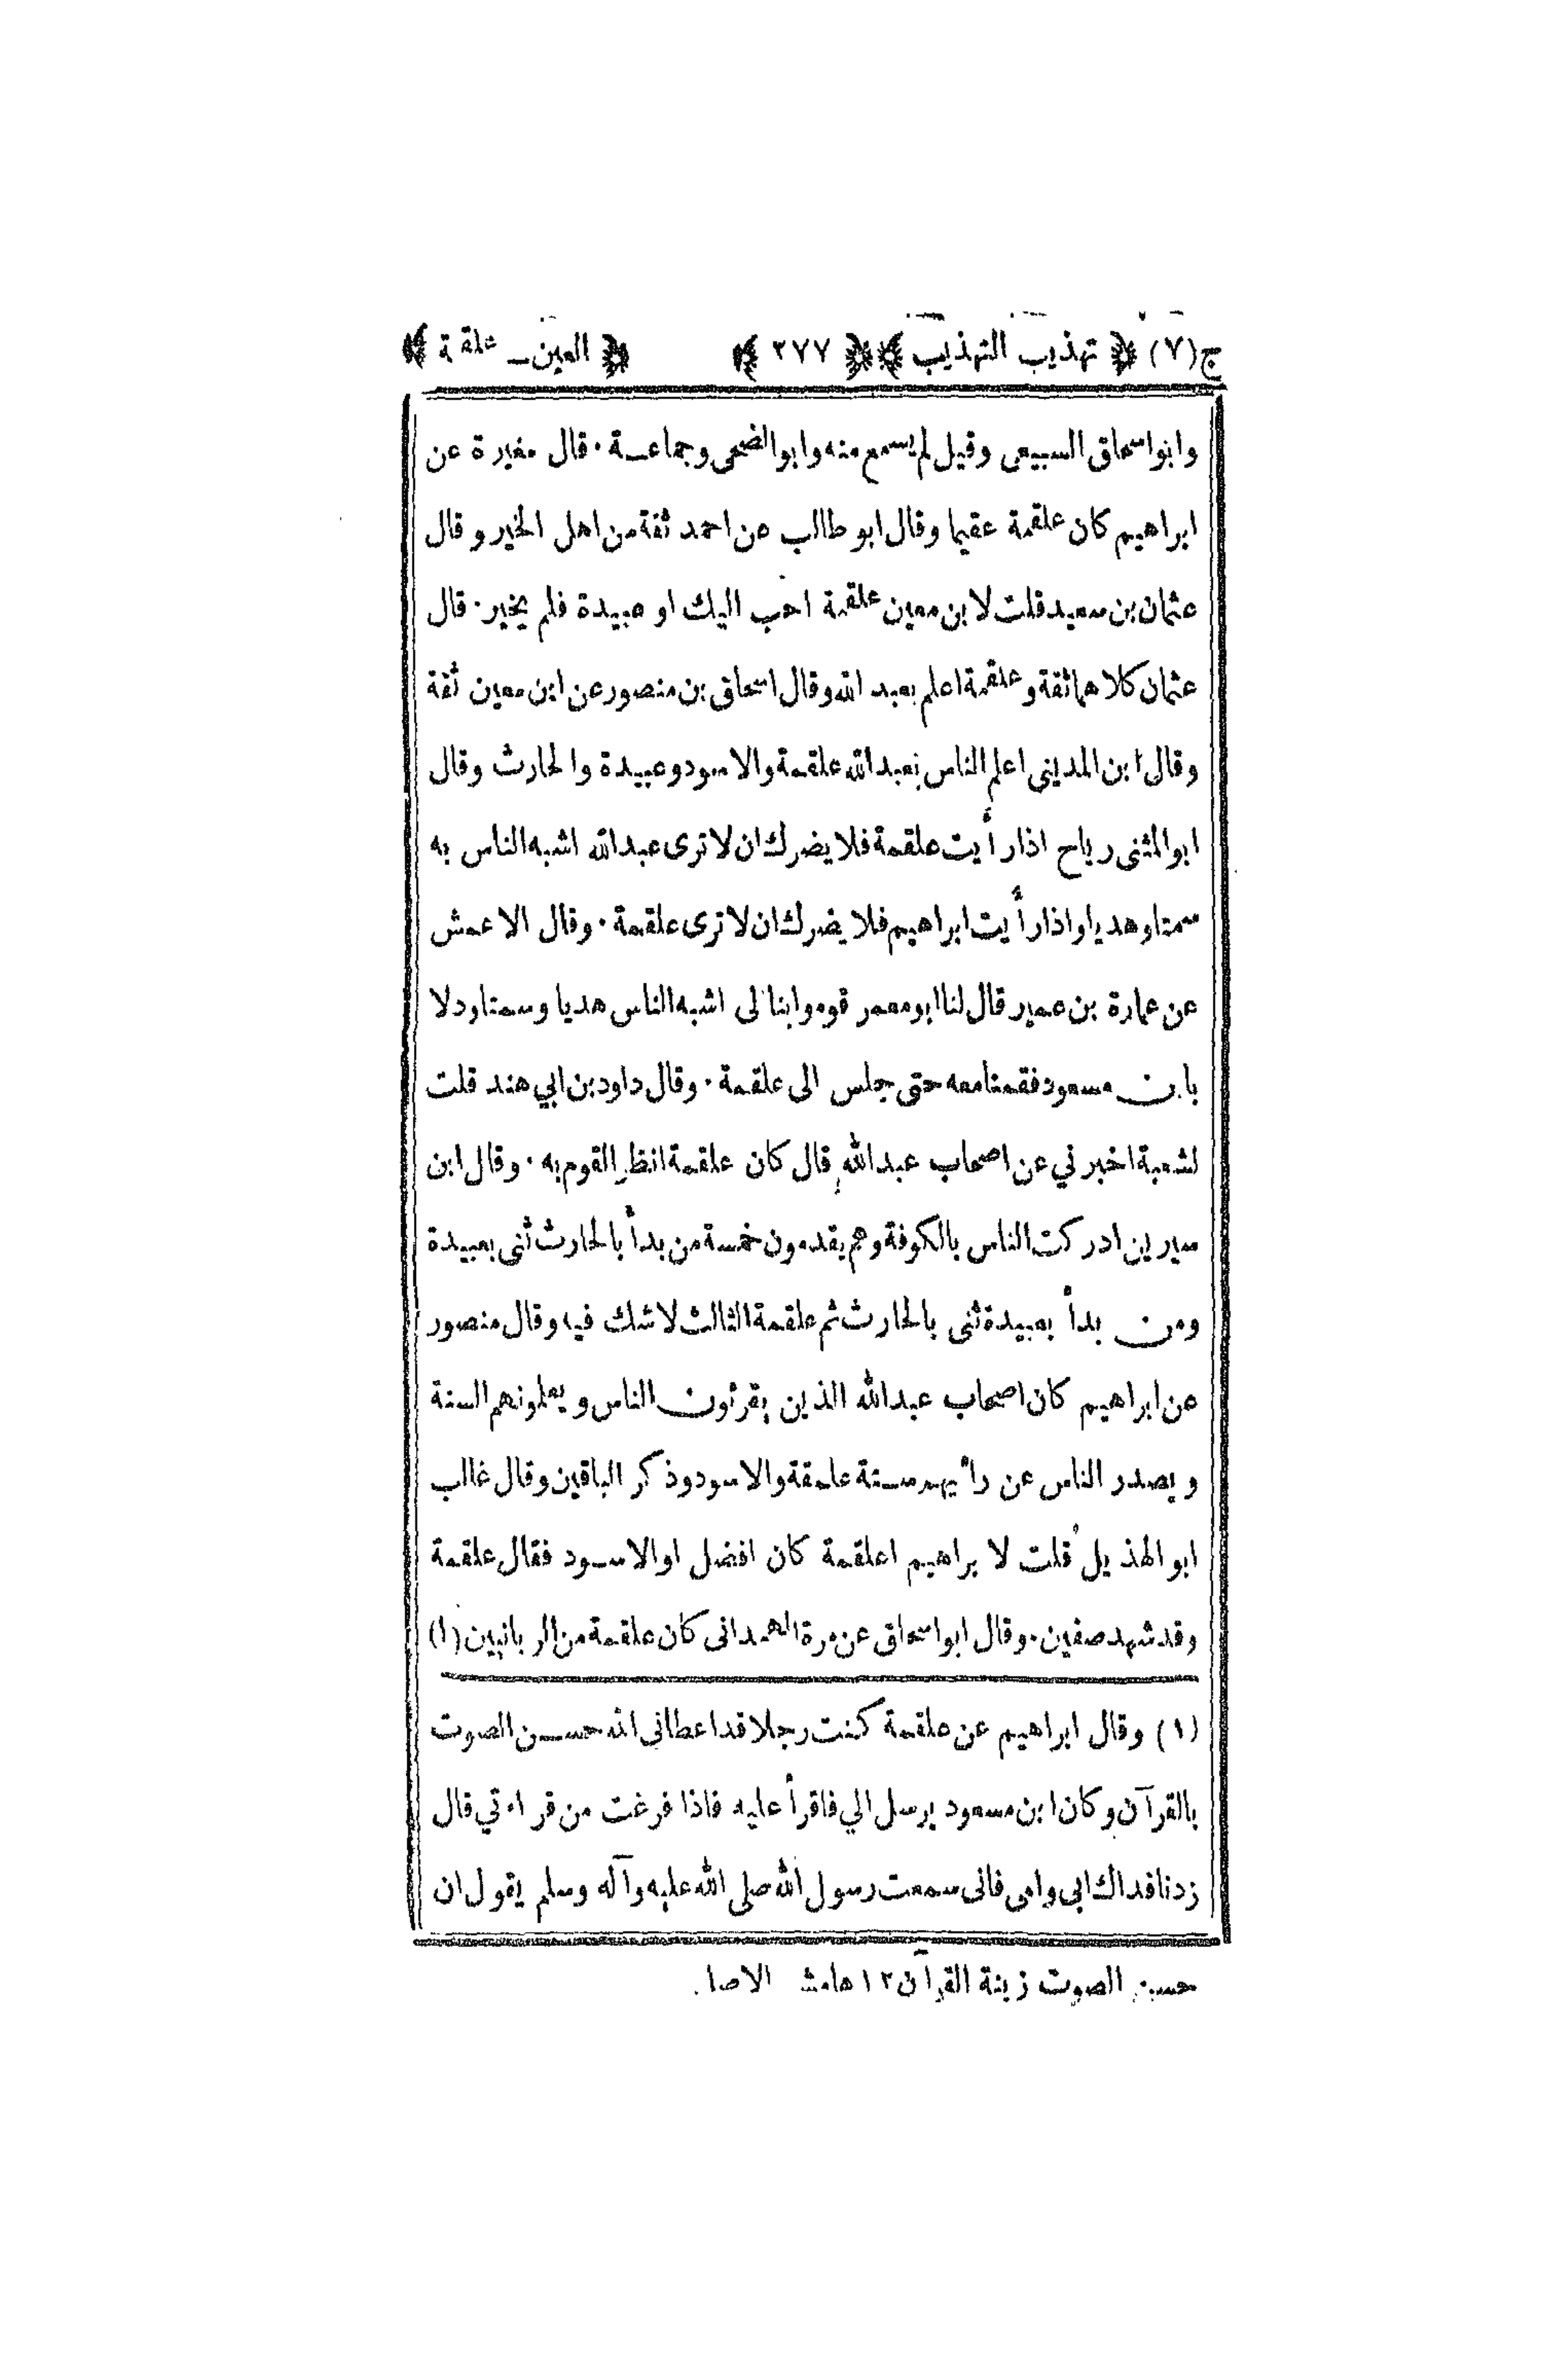 ج(٧) ﴿ تهذيب التهذيب ﴾ ﴿ ٢٧٧ ﴾ ﴿ العين ـ علقمة ﴾
وابو اسحاق السبيعى وقيل لم يسمع منه وابو الضحى وجماعة · قال مغيرة عن
ابراهيم كان علقمة عقيما وقال ابو طالب عن احمد ثقة من اهل الخير وقال
عثمان بن سعيد قلت لا بن معين علقمة احب اليك او عبيدة فلم يخير · قال
عثمان كلاهما ثقة وعلقمة اعلم بعبد الله وقال اسحاق بن منصور عن ابن معين ثقة
وقال ابن المدينى اعلم الناس بعبد الله علقمة والاسود وعبيدة والحارث وقال
ابو المثنى رياح اذا رأيت علقمة فلا يضرك ان لا ترى عبد الله اشبه الناس به
سمتا وهديا واذا رأيت ابراهيم فلا يضرك ان لا ترى علقمة · وقال الاعمش
عن عمارة بن عمير قال لنا ابو معمر قوموا بنا لى اشبه الناس هديا وسمتا ودلا
بابن مسعود فقمنا معه حتى جلس الى علقمة · وقال داود بن ابي هند قلت
لشعبة اخبرني عن اصحاب عبد الله قال كان علقمة انظر القوم به · وقال ابن
سيرين ادركت الناس بالكوفة وهم يقدمون خمسة من بدأ بالحارث ثنى بعبيدة
ومن بدأ بعبيدة ثنى بالحارث ثم علقمة الثالث لا شك فيه وقال منصور
عن ابراهيم كان اصحاب عبد الله الذين يقرئون الناس ويعلمونهم السنة
ويصدر الناس عن رأيهم ستة علقمة والاسود وذكر الباقين وقال غالب
ابو الهذيل قلت لا براهيم اعلقمة كان افضل او الاسود فقال علقمة
وقد شهد صفين · وقال ابو اسحاق عن مرة الهمدانى كان علقمة من الربانيين (١)
(١) وقال ابراهيم عن علقمة كنت رجلا قد اعطانى الله حسن الصوت
بالقرآن وكان ابن مسعود يرسل الي فاقرأ عليه فاذا فرغت من قراءتي قال
زدنا فداك ابى وامى فانى سمعت رسول الله صلى الله عليه وآله وسلم يقول ان
حسن الصوت زينة القرآن ١٢ هامش